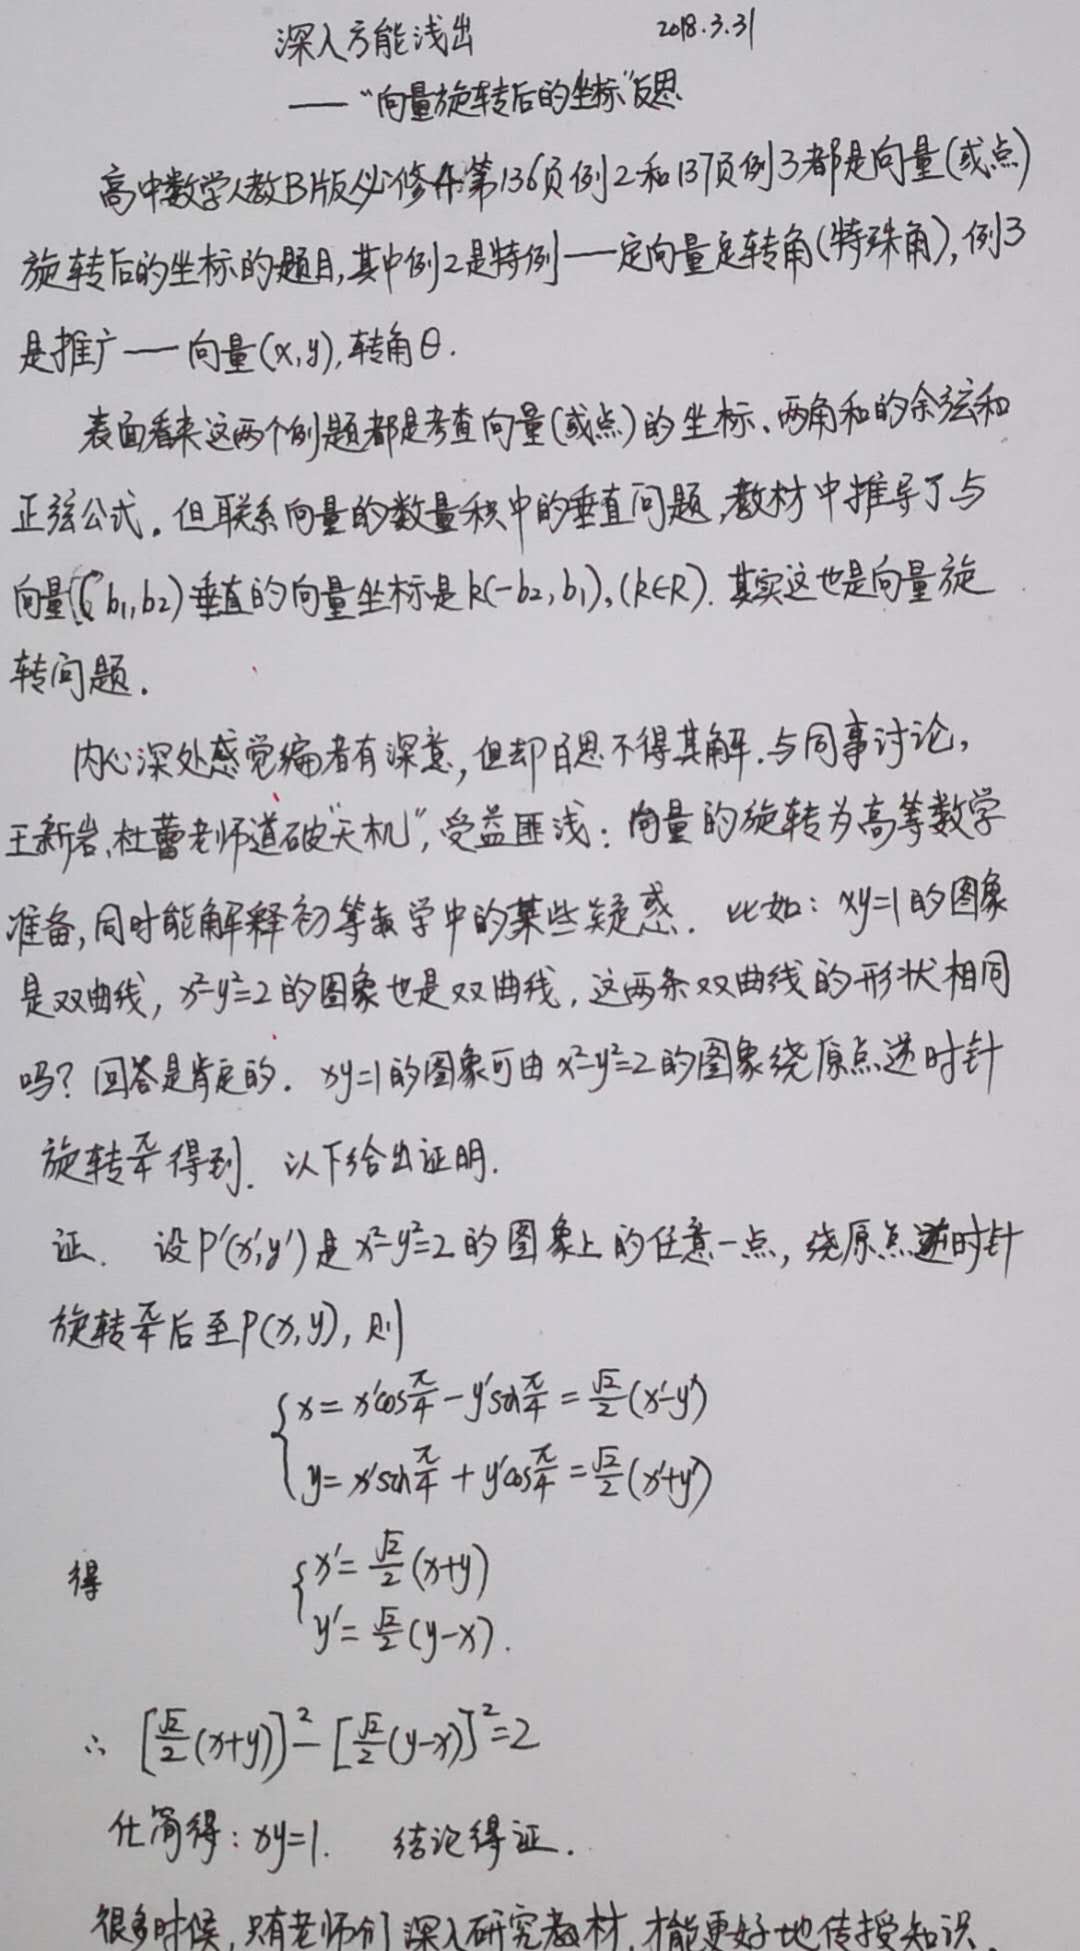 深入方能浅出 2018.3.31
——“向量旋转后的坐标”反思
高中数学人教B版必修4第136页例2和137页例3都是向量(或点)
旋转后的坐标的题目,其中例2是特例——定向量定转角(特殊角),例3
是推广——向量(x,y),转角θ.
表面看来这两个例题都是考查向量(或点)的坐标、两角和的余弦和
正弦公式。但联系向量的数量积中的垂直问题,教材中推导了与
向量(b₁,b₂)垂直的向量坐标是k(-b₂,b₁),(k∈R).其实这也是向量旋
转问题.
内心深处感觉编者有深意,但却百思不得其解.与同事讨论,
王新岩、杜蕾老师道破“天机”,受益匪浅:向量的旋转为高等数学
准备,同时能解释初等数学中的某些疑惑.比如:xy=1的图象
是双曲线,x²-y²=2的图象也是双曲线,这两条双曲线的形状相同
吗?回答是肯定的.xy=1的图象可由x²-y²=2的图象绕原点逆时针
旋转π/4得到.以下给出证明.
证.设P′(x′,y′)是x²-y²=2的图象上的任意一点,绕原点逆时针
旋转π/4后至P(x,y),则
{x=x′cosπ/4-y′sinπ/4=√2/2(x′-y′)
y=x′sinπ/4+y′cosπ/4=√2/2(x′+y′)
得 {x′=√2/2(x+y)
y′=√2/2(y-x).
∴[√2/2(x+y)]²-[√2/2(y-x)]²=2
化简得:xy=1. 结论得证.
很多时候,只有老师们深入研究教材,才能更好地传授知识.